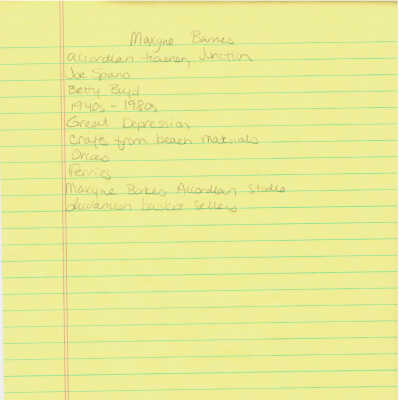 Maryne Barnes
accordian trainer, Junction
Joe Spano
Betty Boyd
1940s - 1980s
Great Depression
crafts from beach materials
Orcas
Ferries
Maryne Barnes Accordian Studio
basket sellers